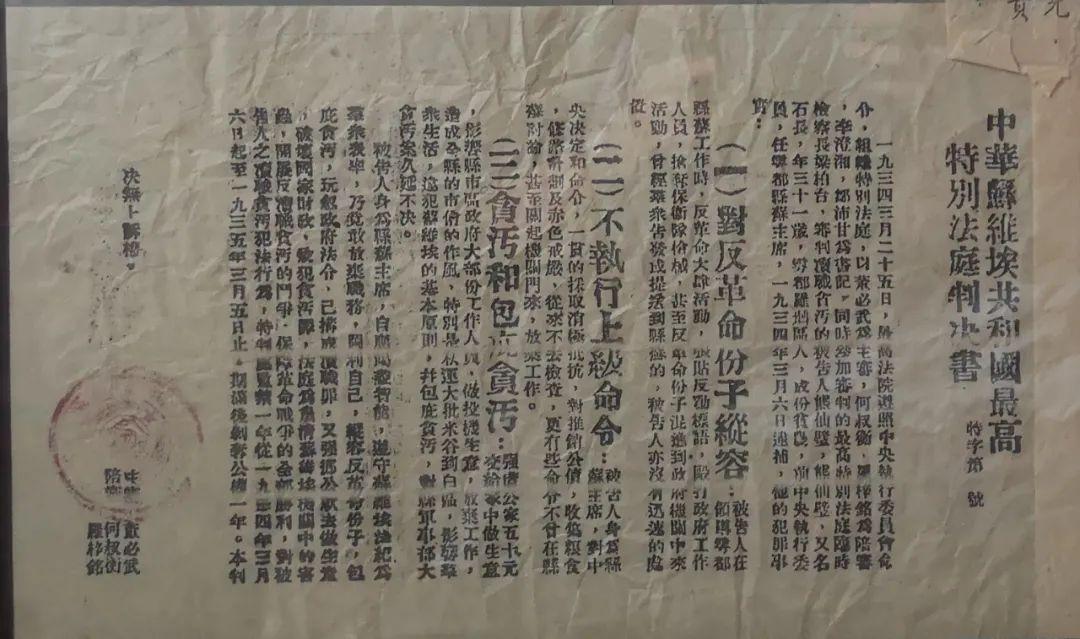 中華蘇維埃共和國最高
特別法庭判决書
特字第 號
一九三四三月二十五日，最高法院遵照中央執行委員會命
令，組織特別法庭，以董必武爲主審，何叔衡、羅梓銘爲陪審
，李澄湘，鄒沛甘爲書記，同時參加審判的最高特別法庭臨時
檢察長梁柏台，審判瀆職貪汚的被告人熊仙璧，熊仙璧，又名
石長，年三十一歲，雩都縣人，成份貧農，前中央執行委
員，任雩都縣蘇主席，一九三四年三月六日逮捕，他的犯罪事
實：
（一）對反革命份子縱容：被告人在
領導雩都
縣蘇工作時，反革命大肆活動，張貼反動標語，毆打政府工作
人員，搶奪保衛隊槍械，甚至反革命份子混進到政府機關中來
活動，曾經羣衆告發或提議到縣蘇的，被告人亦沒有迅速的處
置。
（二）不執行上級命令：被告人身爲縣
蘇主席，對中
央决定和命令，一貫的採取消極抵抗，對推銷公債，收集糧食
，修路計劃及赤色戒嚴，從來不去檢查，更有些命令不曾在縣
蘇討論，甚至關起機關門來，放棄工作。
（三）貪汚和包庇貪汚：强借公家五十元
交給家中做生意
，影響縣市區政府大部份工作人員，做投機生意，放棄工作，
造成全縣的市儈的作風，特別是私運大批米谷到白區，影響羣
衆生活，違犯蘇維埃的基本原則，并包庇貪汚，對縣軍事部大
貪汚案久延不决。
被告人身爲縣蘇主席，自應竭盡智能，遵守蘇維埃法紀爲
羣衆表率，乃竟敢放棄職務，圖利自己，縱容反革命份子，包
庇貪汚，玩忽政府法令，已構成瀆職罪，又强挪公款去做生意
，破壞國家財政，發犯貪汚罪，法庭爲肅清蘇維埃機關中的害
蟲，開展反瀆職貪汚的鬥爭，保障革命戰爭的全部勝利，對被
告人之瀆職貪汚犯法行爲，特判處監禁一年從一九三四年三月
六日起至一九三五年三月五日止。期滿後剝奪公權一年。本判
决無上訴權。
主審 董必武
陪審 何叔衡
羅梓銘